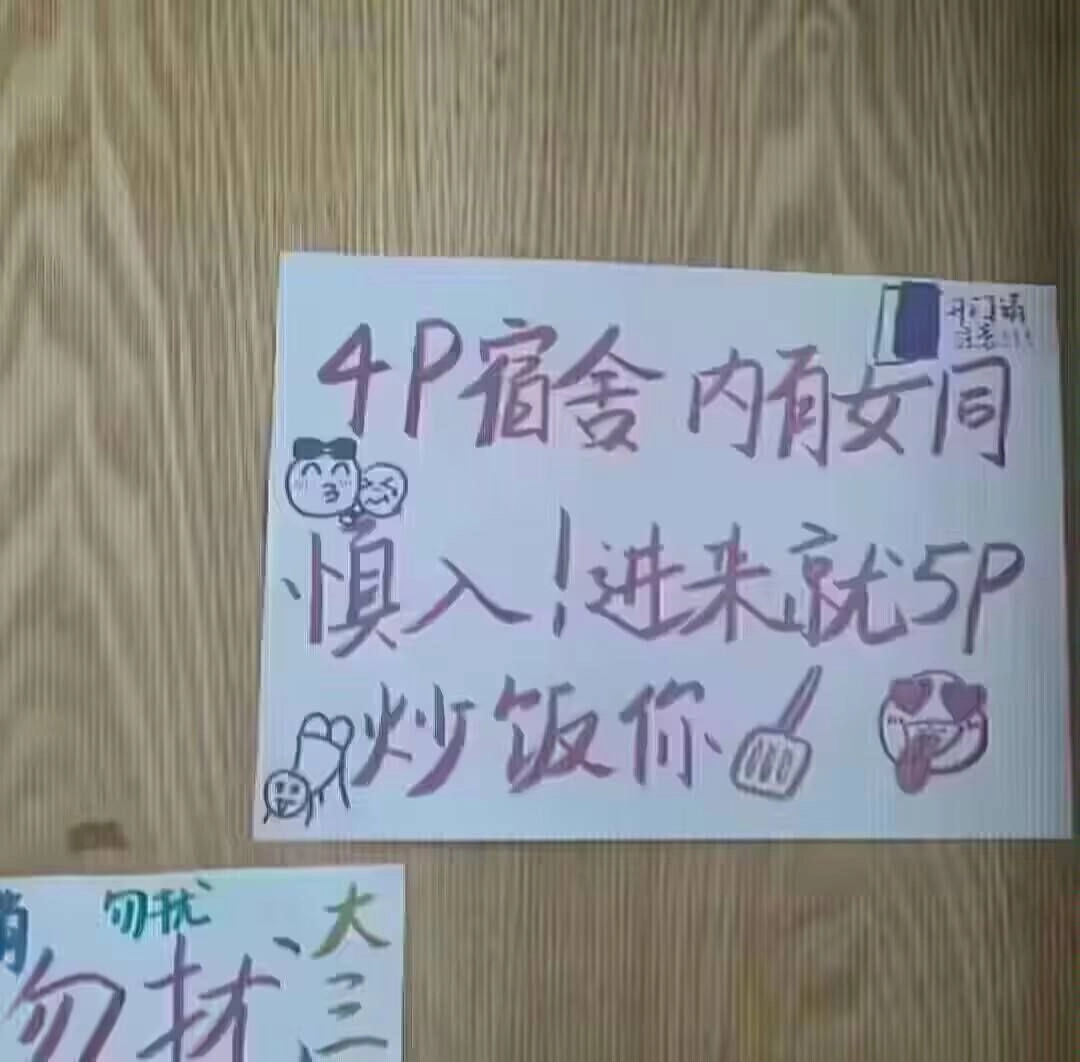 开门请
注意!!!
4P宿舍 内有女同
慎入!进来就5P
炒饭你
勿扰
大
三
勿扰